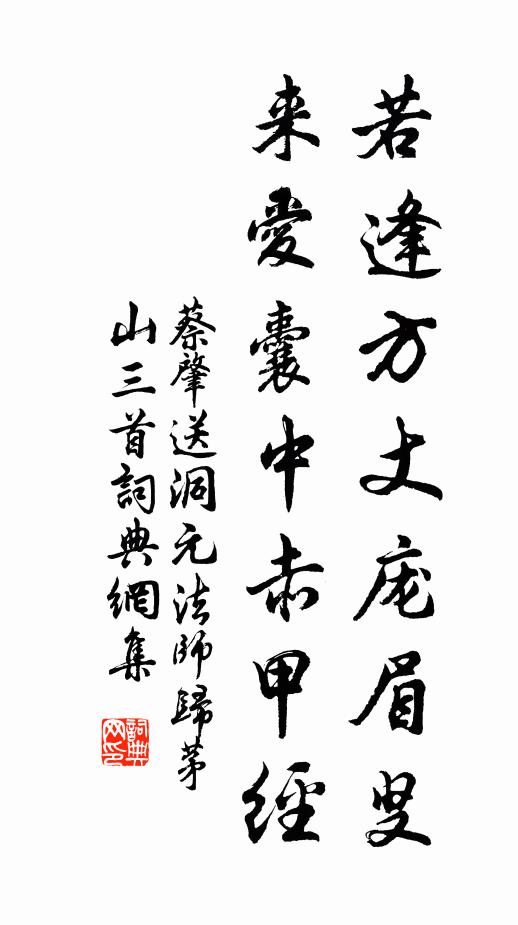 若逢方丈庞眉叟
来爱囊中赤甲经
蔡肇送洞元法師歸茅
山三首詞典網集
詞典
网印